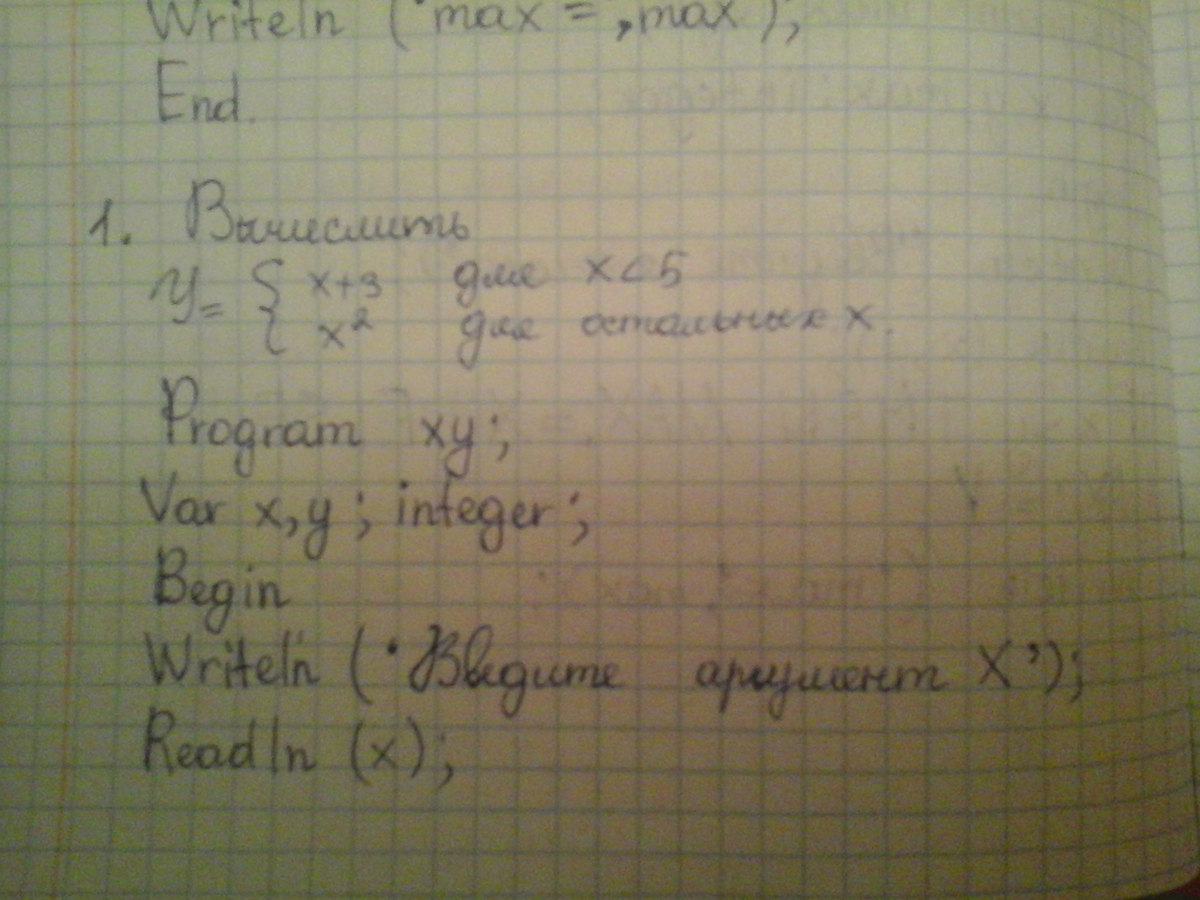 Writeln ('max = ,max);
End.
1. Вычислить
y = { x+3 для x<5
x² для остальных x.
Program xy;
Var x,y ; integer;
Begin
Writeln ('Введите аргумент X');
Readln (x);